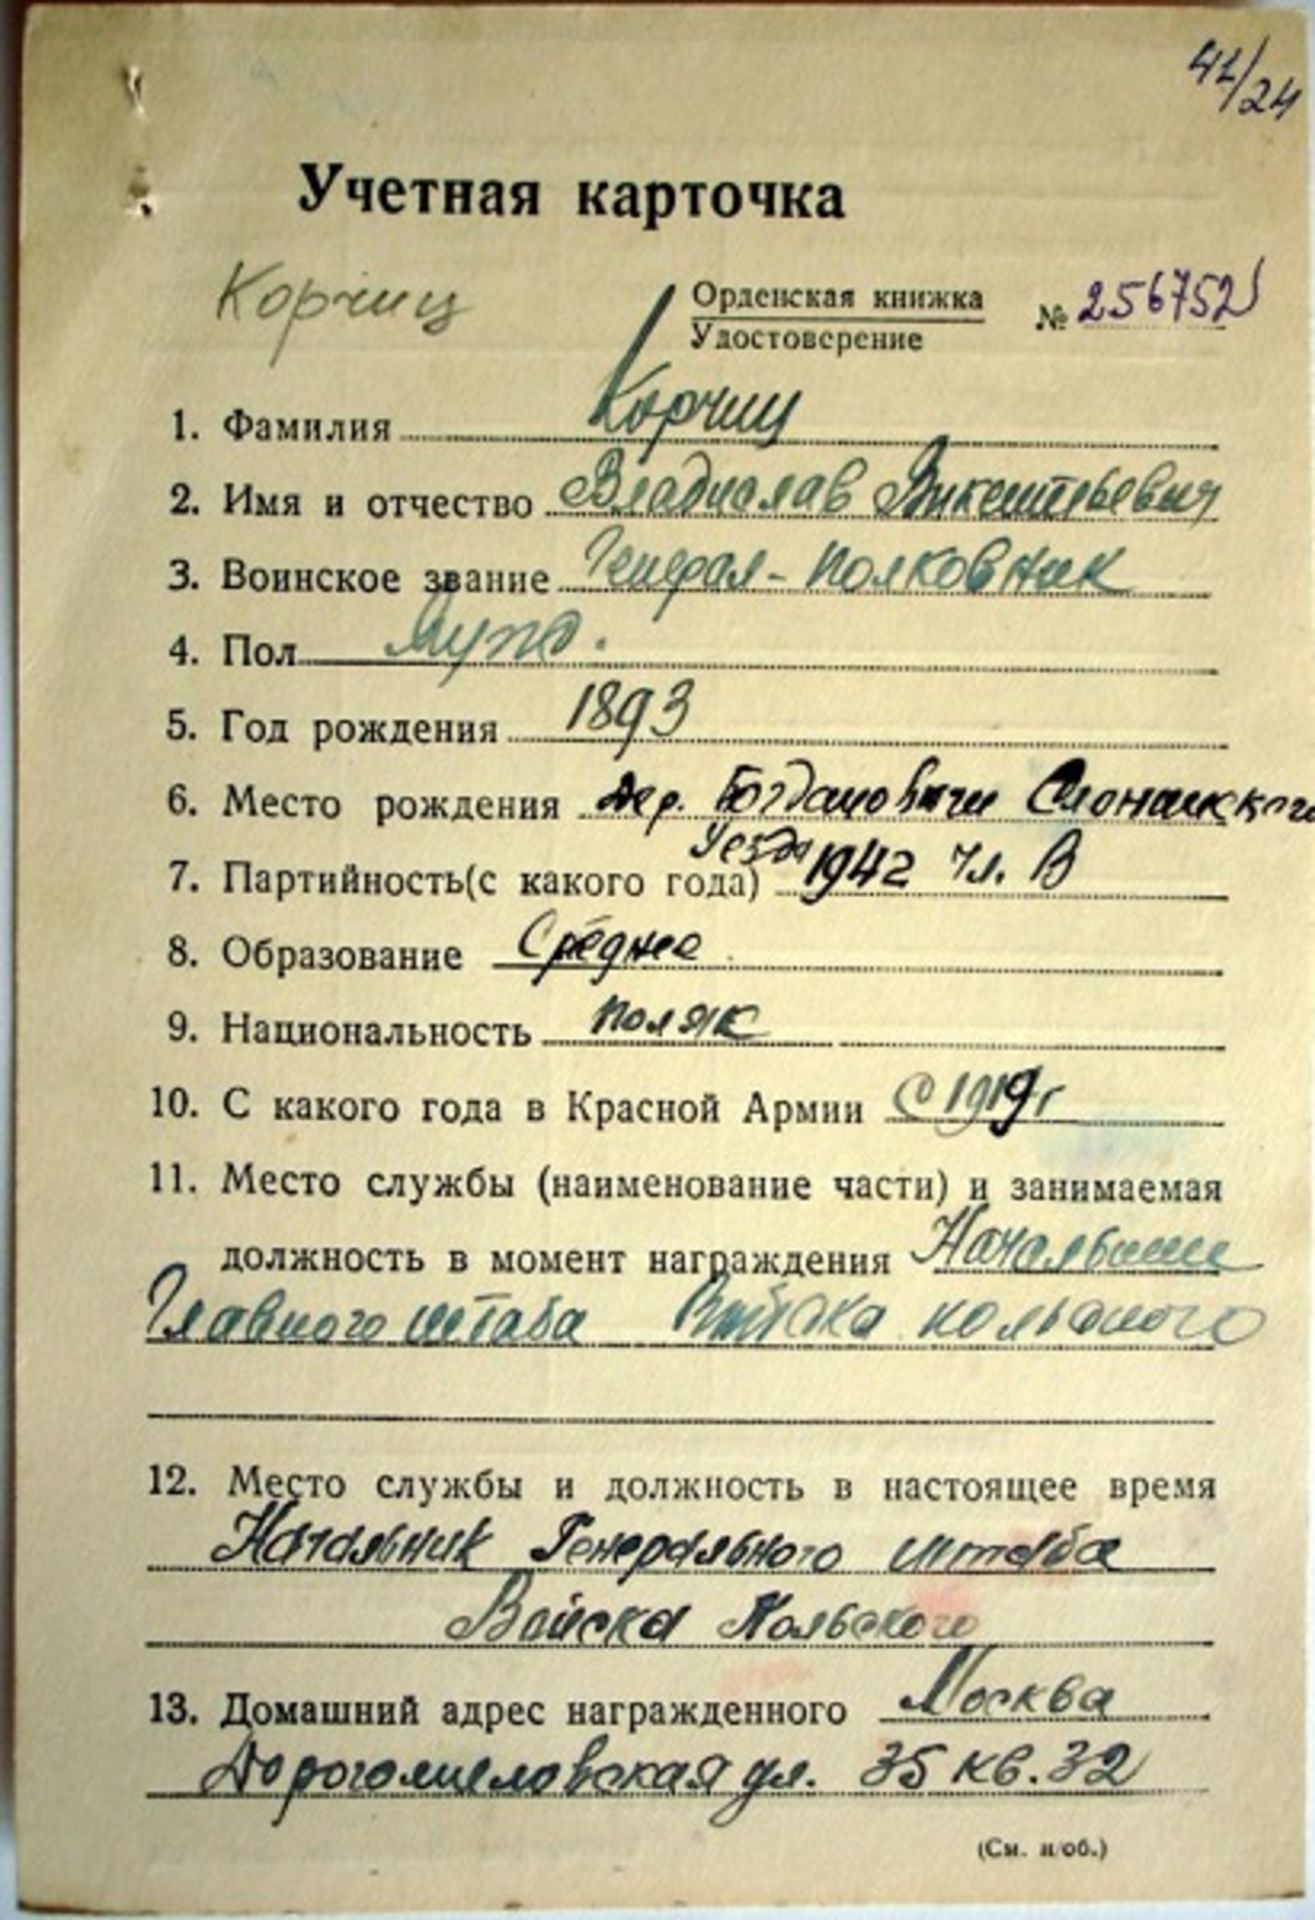 41/24
Учетная карточка
Корчиц
Орденская книжка № 256752
Удостоверение
1. Фамилия Корчиц
2. Имя и отчество Владислав Викентьевич
3. Воинское звание Генерал-полковник
4. Пол Муж.
5. Год рождения 1893
6. Место рождения дер. Богдановичи Слонимского
уезда
7. Партийность(с какого года) 1942 чл. В
8. Образование Среднее
9. Национальность Поляк
10. С какого года в Красной Армии С 1919 г
11. Место службы (наименование части) и занимаемая
должность в момент награждения Начальник
Главного штаба Войска польского
12. Место службы и должность в настоящее время
Начальник Генерального штаба
Войска Польского
13. Домашний адрес награжденного Москва
Дорогомиловская ул. 35 кв. 32
(См. н/об.)